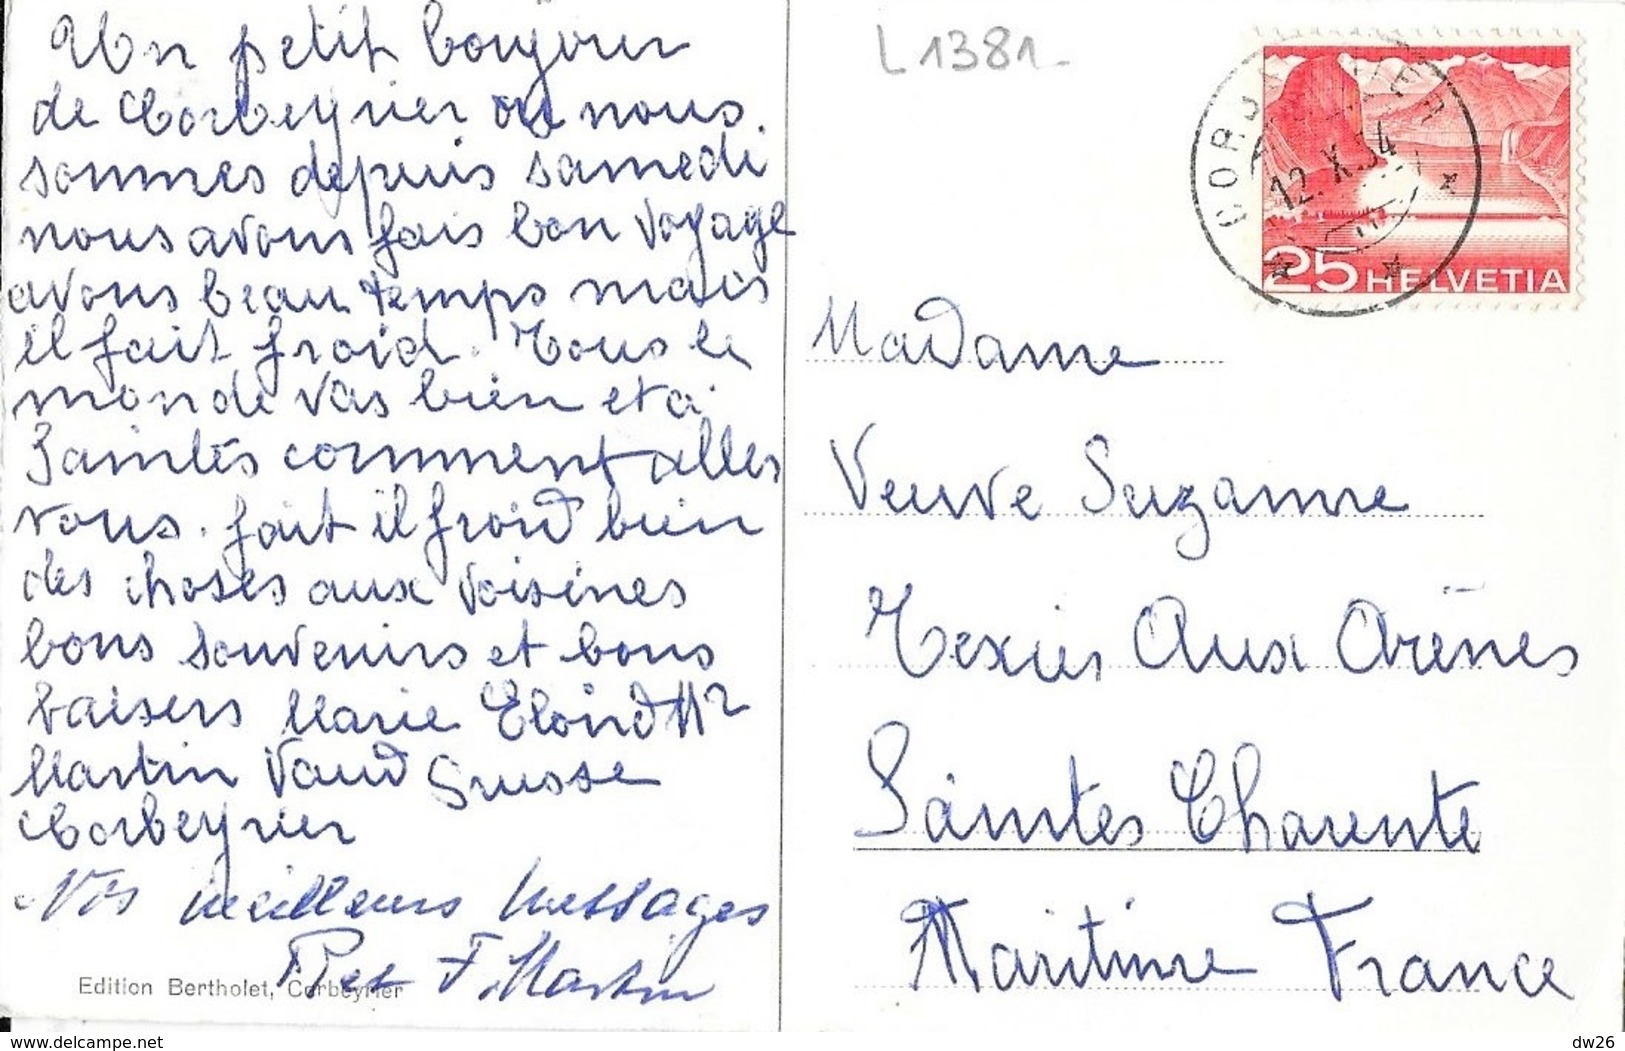 Un petit bonjour
de Corbeyrier ou nous
sommes depuis samedi
nous avons fais bon voyage
avons beau temps mais
il fait froid. Tous le
monde vas bien et a
Saintes comment alles
vous. fait il froid bien
des choses aux voisines
bons souvenirs et bons
baisers Marie
Martin Vaud Suisse
Corbeyrier
Nos meilleurs messages
F. Martin
Edition Bertholet, Corbeyrier
L1381-
12.X.54
25 HELVETIA
Madame
Veuve Suzanne
Texier Aux Arènes
Saintes Charente
Maritime France
www.delcampe.net
dw26